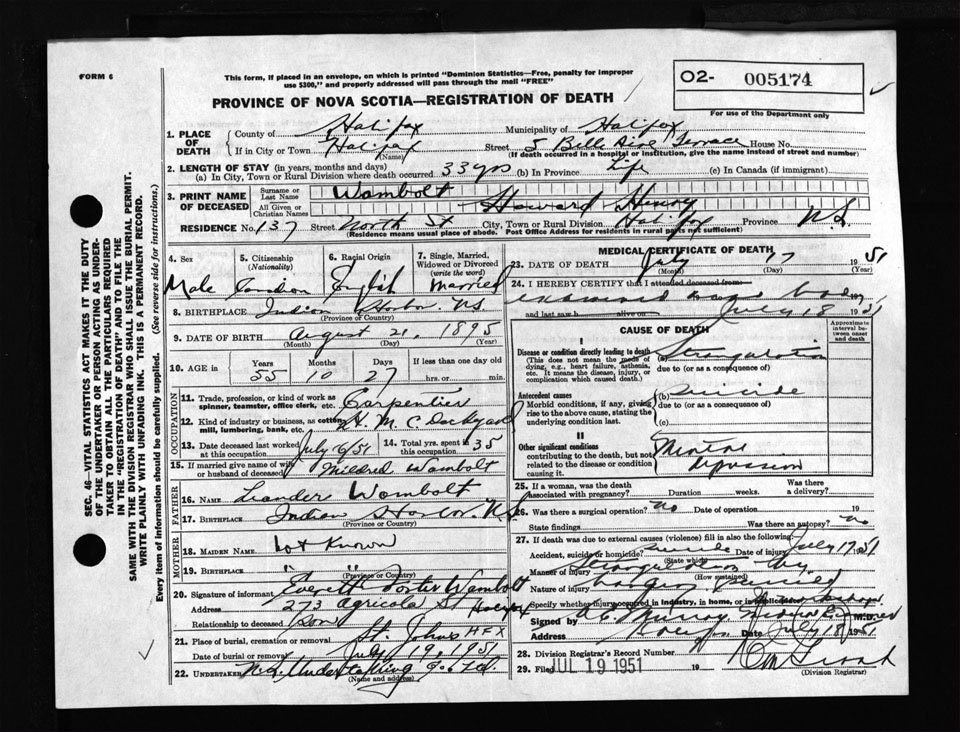 FORM 6
This form, if placed in an envelope, on which is printed "Dominion Statistics—Free, penalty for improper
use $300," and properly addressed will pass through the mail "FREE"
PROVINCE OF NOVA SCOTIA—REGISTRATION OF DEATH
O2- 005174
For use of the Department only
SEC. 46—VITAL STATISTICS ACT MAKES IT THE DUTY
OF THE UNDERTAKER OR PERSON ACTING AS UNDER-
TAKER TO OBTAIN ALL THE PARTICULARS REQUIRED
IN THE "REGISTRATION OF DEATH" AND TO FILE THE
SAME WITH THE DIVISION REGISTRAR WHO SHALL ISSUE THE BURIAL PERMIT.
WRITE PLAINLY WITH UNFADING INK. THIS IS A PERMANENT RECORD.
Every item of information should be carefully supplied. (See reverse side for instructions.)
1. PLACE OF DEATH
County of Halifax Municipality of Halifax
If in City or Town Halifax (Name) Street 5 Belle Aire Terrace House No.
(If death occurred in a hospital or institution, give the name instead of street and number)
2. LENGTH OF STAY (in years, months and days)
(a) In City, Town or Rural Division where death occurred 33 yrs (b) In Province Life (c) In Canada (if immigrant)
3. PRINT NAME OF DECEASED
Surname or Last Name Wambolt
All Given or Christian Names Howard Henry
RESIDENCE No. 137 Street North St City, Town or Rural Division Halifax Province N.S.
(Residence means usual place of abode. Post Office Address for residents in rural parts not sufficient)
4. Sex Male
5. Citizenship (Nationality)
6. Racial Origin English
7. Single, Married, Widowed or Divorced (write the word) Married
8. BIRTHPLACE Indian Harbor N.S.
(Province or Country)
9. DATE OF BIRTH August 21, 1895
(Month) (Day) (Year)
10. AGE in Years 55 Months 10 Days 27 If less than one day hrs. or min.
OCCUPATION
11. Trade, profession, or kind of work as spinner, teamster, office clerk, etc. Carpentier
12. Kind of industry or business, as cotton mill, lumbering, bank, etc. H. M. C. Dockyard
13. Date deceased last worked at this occupation July 6/51 14. Total yrs. spent in this occupation 35
15. If married give name of wife or husband of deceased Mildred Wambolt
FATHER
16. NAME Leander Wambolt
17. BIRTHPLACE Indian Harbor N.S.
(Province or Country)
MOTHER
18. MAIDEN NAME Not Known
19. BIRTHPLACE " "
(Province or Country)
20. Signature of informant Everett Foster Wambolt
Address 273 Agricola St Halifax
Relationship to deceased Son
21. Place of burial, cremation or removal St. Johns HFX
Date of burial or removal July 19, 1951
22. UNDERTAKER N.S. Undertaking Co. Ltd.
(Name and address)
MEDICAL CERTIFICATE OF DEATH
23. DATE OF DEATH July 17 1951
(Month) (Day) (Year)
24. I HEREBY CERTIFY that I attended deceased from
examined body
and last saw h alive on July 18 1951
CAUSE OF DEATH
Approximate interval between onset and death
I
Disease or condition directly leading to death
(This does not mean the mode of dying, e.g., heart failure, asthenia, etc. It means the disease, injury, or complication which caused death.)
(a) Strangulation
due to (or as a consequence of)
Antecedent causes
Morbid conditions, if any, giving rise to the above cause, stating the underlying condition last.
(b) Suicide
due to (or as a consequence of)
(c)
II
Other significant conditions contributing to the death, but not related to the disease or condition causing it.
Mental
depression
25. If a woman, was the death associated with pregnancy? Duration weeks. Was there a delivery?
26. Was there a surgical operation? no Date of operation 19
State findings Was there an autopsy? no
27. If death was due to external causes (violence) fill in also the following:
Accident, suicide or homicide? Suicide (State which) Date of injury July 17 51
Manner of injury Strangulation by
(How sustained)
hanging suicide
Specify whether injury occurred in industry, in home, or in public place
Signed by M.D.
Address Date July 18 1951
28. Division Registrar's Record Number
29. Filed JUL 19 1951 19
(Division Registrar)